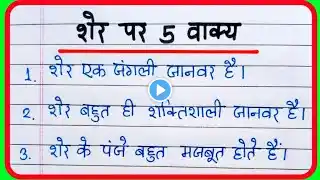 शेर पर 5 वाक्य
1. शेर एक जंगली जानवर है।
2. शेर बहुत ही शक्तिशाली जानवर है।
3. शेर के पंजे बहुत मजबूत होते हैं।